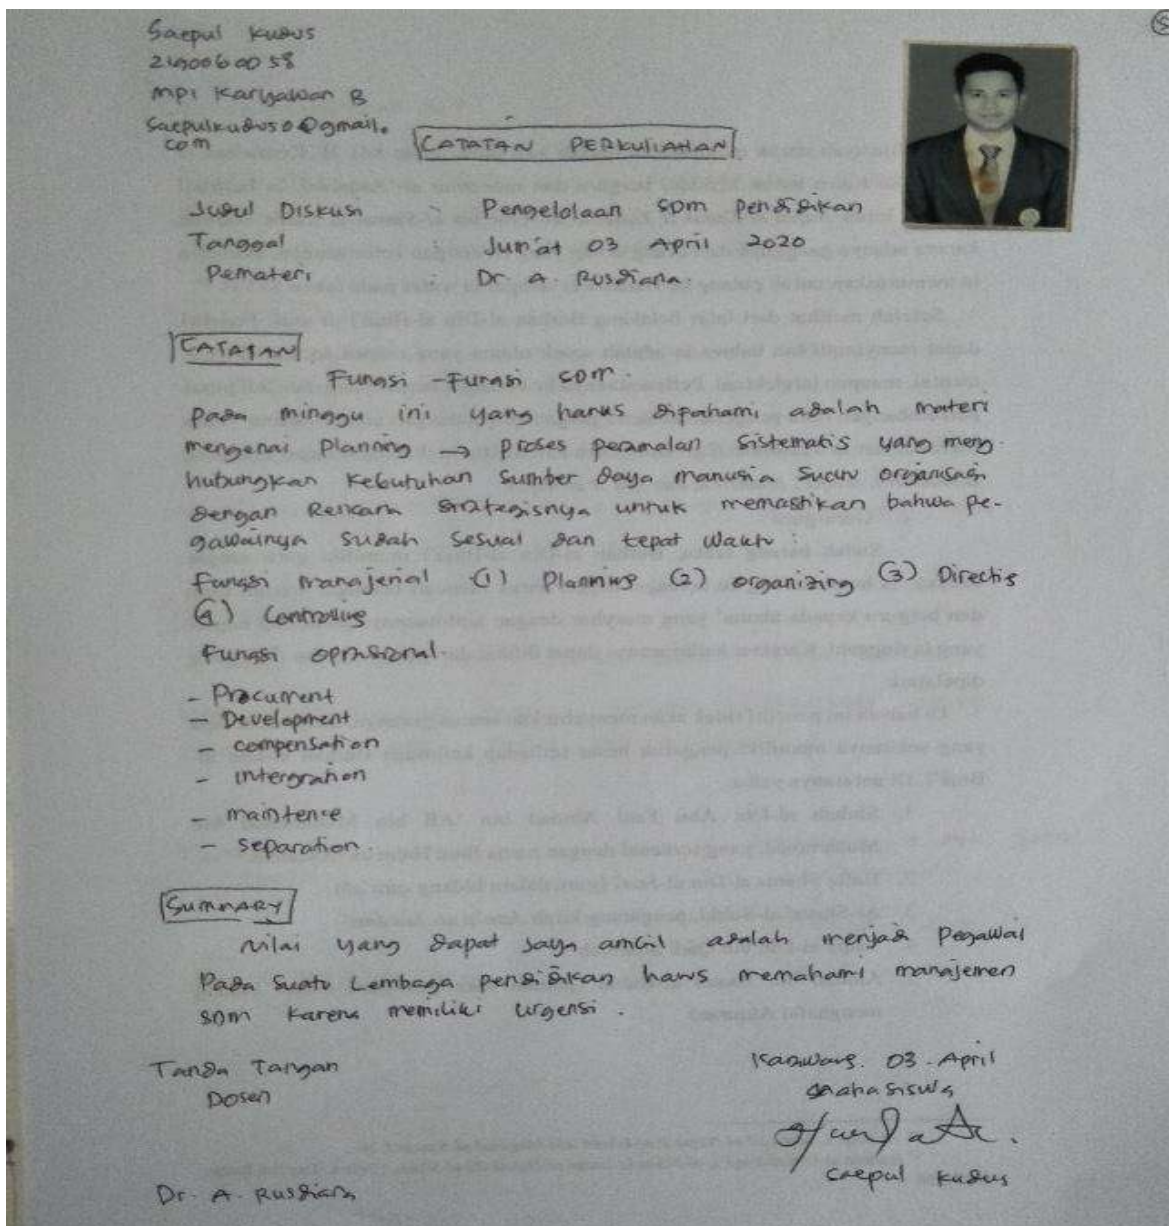 Saepul Kudus
2190060058
MPI Karyawan B
Saepulkudus0@gmail.
com
CATATAN PERKULIAHAN
Judul Diskusi : Pengelolaan SDM Pendidikan
Tanggal : Jum'at 03 April 2020
Pemateri : Dr. A. Rusdiana.
CATATAN
Fungsi - Fungsi SDM.
Pada minggu ini yang harus dipahami adalah materi
mengenai Planning → proses peramalan sistematis yang meng-
hubungkan kebutuhan sumber daya manusia suatu organisasi
dengan Rencana strategisnya untuk memastikan bahwa pe-
gawainya sudah sesuai dan tepat waktu :
fungsi manajerial (1) Planning (2) organizing (3) Directig
(4) Controlling
Fungsi oprasional.
- Procurment
- Development
- compensation
- intergration
- maintence
- separation.
SUMMARY
Nilai yang dapat saya ambil adalah menjadi Pegawai
Pada suatu Lembaga pendidikan harus memahami manajemen
SDM karena memiliki urgensi.
Tanda Tangan
Dosen
Dr. A. Rusdiana
Karawang. 03 - April
Mahasiswa
Saepul Kudus